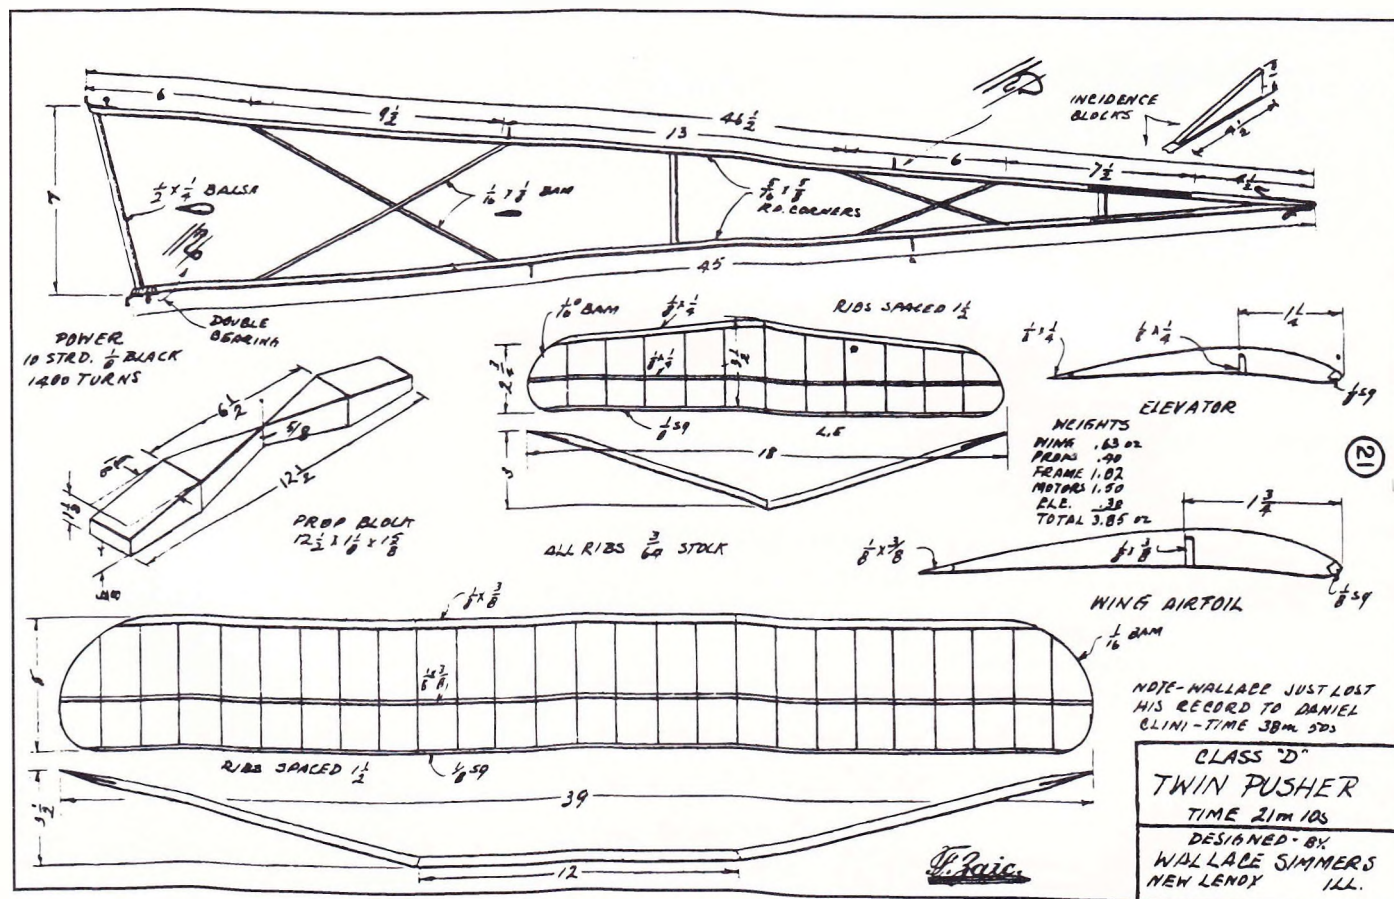 6
9 1/2
46 1/2
13
6
7 1/2
4 1/2
7
1/2 x 1/4 BALSA
1/16 x 1/8 BAM
5/16 x 5/8
RD. CORNERS
INCIDENCE
BLOCKS
4 1/2
45
DOUBLE
BEARING
POWER
10 STRD. 1/8 BLACK
1400 TURNS
6 1/2
5/8
12 1/2
PROP BLOCK
12 1/2 x 1 1/8 x 1 5/8
1/16 BAM
1/8 x 1/4
RIBS SPACED 1 1/2
2 3/4
1/8 x 1/4
3 1/2
1/8 SQ
L.E
18
3
ALL RIBS 3/64 STOCK
1 1/4
1/8 x 1/4
1/8 x 1/4
1/8 SQ
ELEVATOR
WEIGHTS
WING .63 oz
PROPS .40
FRAME 1.02
MOTORS 1.50
ELE. .30
TOTAL 3.85 oz
21
1 3/4
1/8 x 3/8
1/8 x 3/8
1/8 SQ
WING AIRFOIL
1/8 x 3/8
1/16 BAM
5
RIBS SPACED 1 1/2
1/8 SQ
3 1/2
39
12
NOTE-WALLACE JUST LOST
HIS RECORD TO DANIEL
CLINI-TIME 38m 50s
CLASS "D"
TWIN PUSHER
TIME 21m 10s
DESIGNED-BY.
WALLACE SIMMERS
NEW LENOX ILL.
F. Zaic.